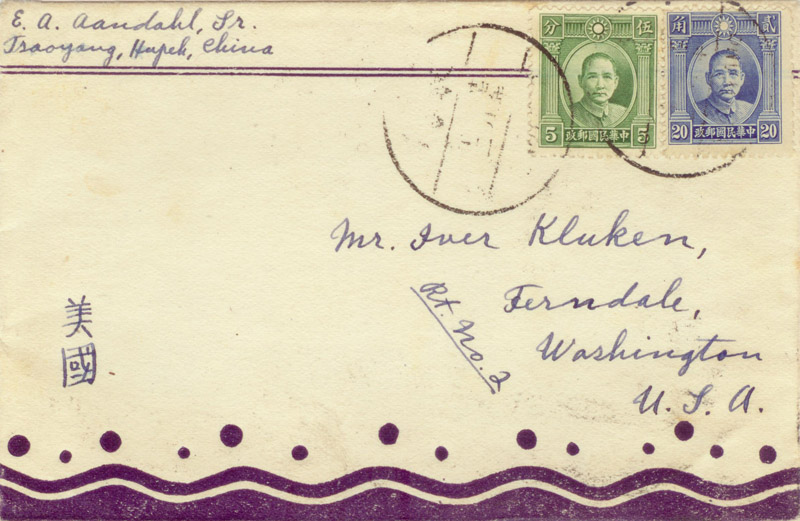 E. A. Aandahl, Sr.
Tsaoyang, Hupeh, China
分 伍
5 5
政郵國民華中
角 貳
20 20
政郵國民華中
Mr. Iver Kluken,
Rt. No. 2
Ferndale,
Washington
U. S. A.
美
國